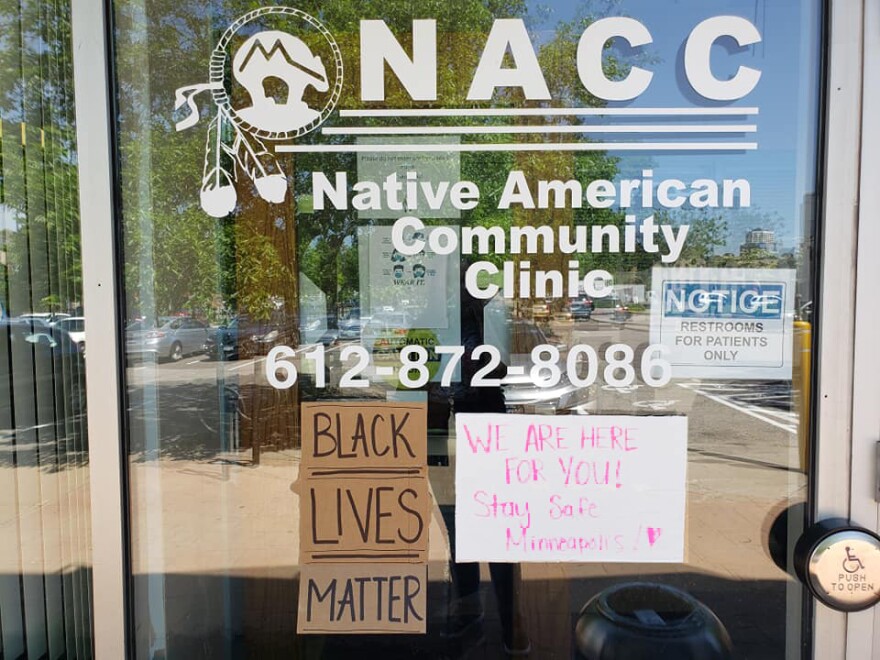 NACC
Native American
Community
Clinic
612-872-8086
WEAR IT.
AUTOMATIC
NOTICE
RESTROOMS
FOR PATIENTS
ONLY
BLACK
LIVES
MATTER
WE ARE HERE
FOR YOU!
Stay Safe
Minneapolis!
PUSH
TO OPEN